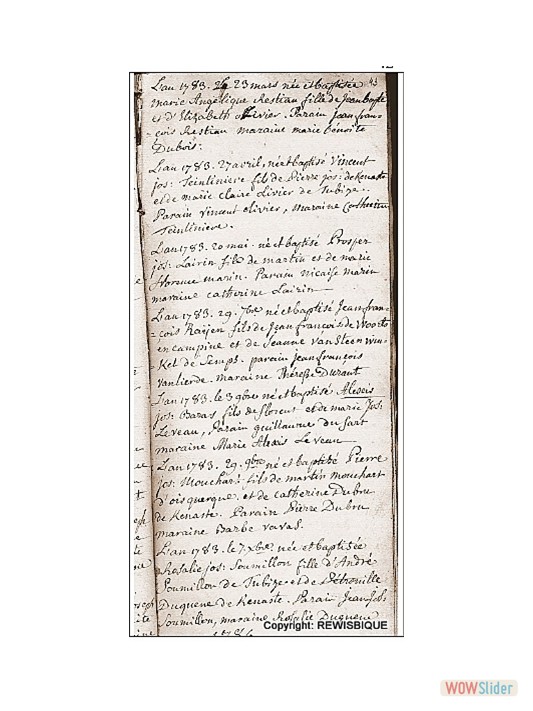 43
L'an 1783. 23 mars née et baptisée
marie Angélique Restiau fille de Jean bapte
et d'Elizabeth olivier. Parain jean fran=
çois Restiau maraine marie benoite
Dubois:
L'an 1783. 27 avril, né et baptisé Vincent
jos: Teinliniere fils de Pierre jos: de Kenaste
et de marie claire olivier de Tubize..
Parain Vincent olivier, maraine Catherine
Teinliniere.
L'an 1783. 20 mai. né et baptisé Prosper
jos: Lairin fils de martin et de marie
florence marin. Parain nicaise marin
maraine catherine Lairin
L'an 1783. 29. 7bre né et baptisé Jean fran=
çois Raijen fils de jean francois de Woorto
en campine et de Jeanne van Steen win=
Kel de Semps. parain jean francois
Vanlierde. maraine Thérèse Durant
L'an 1783. le 3 9bre né et baptisé Alexis
jos: Baras fils de florent et de marie Jos:
Leveau, Parain guillaume du Sart
maraine Marie Alexis Leveau
L'an 1783. 29. 9bre né et baptisé Pierre
jos: Mouchart fils de martin mouchart
d'oisquerque. et de catherine Dubru
de Kenaste. Parain Pierre Dubru
maraine Barbe vavas.
L'an 1783. le 7 xbre. née et baptisée
Rosalie jos: Soumillon fille d'André
Soumillon de Tubize et de Pétronille
Duquene de Kenaste. Parain Jean Jos:
Soumillon, maraine Rosalie Duquene
Copyright: REWISBIQUE
WOWSlider